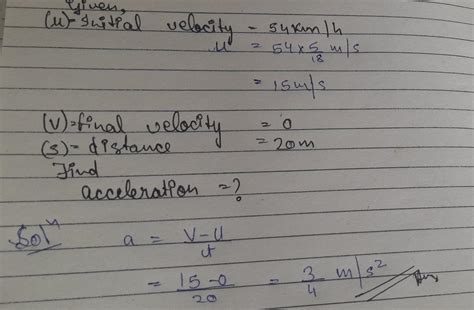 Given,
(u)= Initial velocity = 54km/h
u = 54 × 5/18 m/s
= 15 m/s
(v)= final velocity = 0
(s)= distance = 20m
Find
acceleration = ?
Solⁿ a = V-U/t
= 15-0/20 = 3/4 m/s² Ans